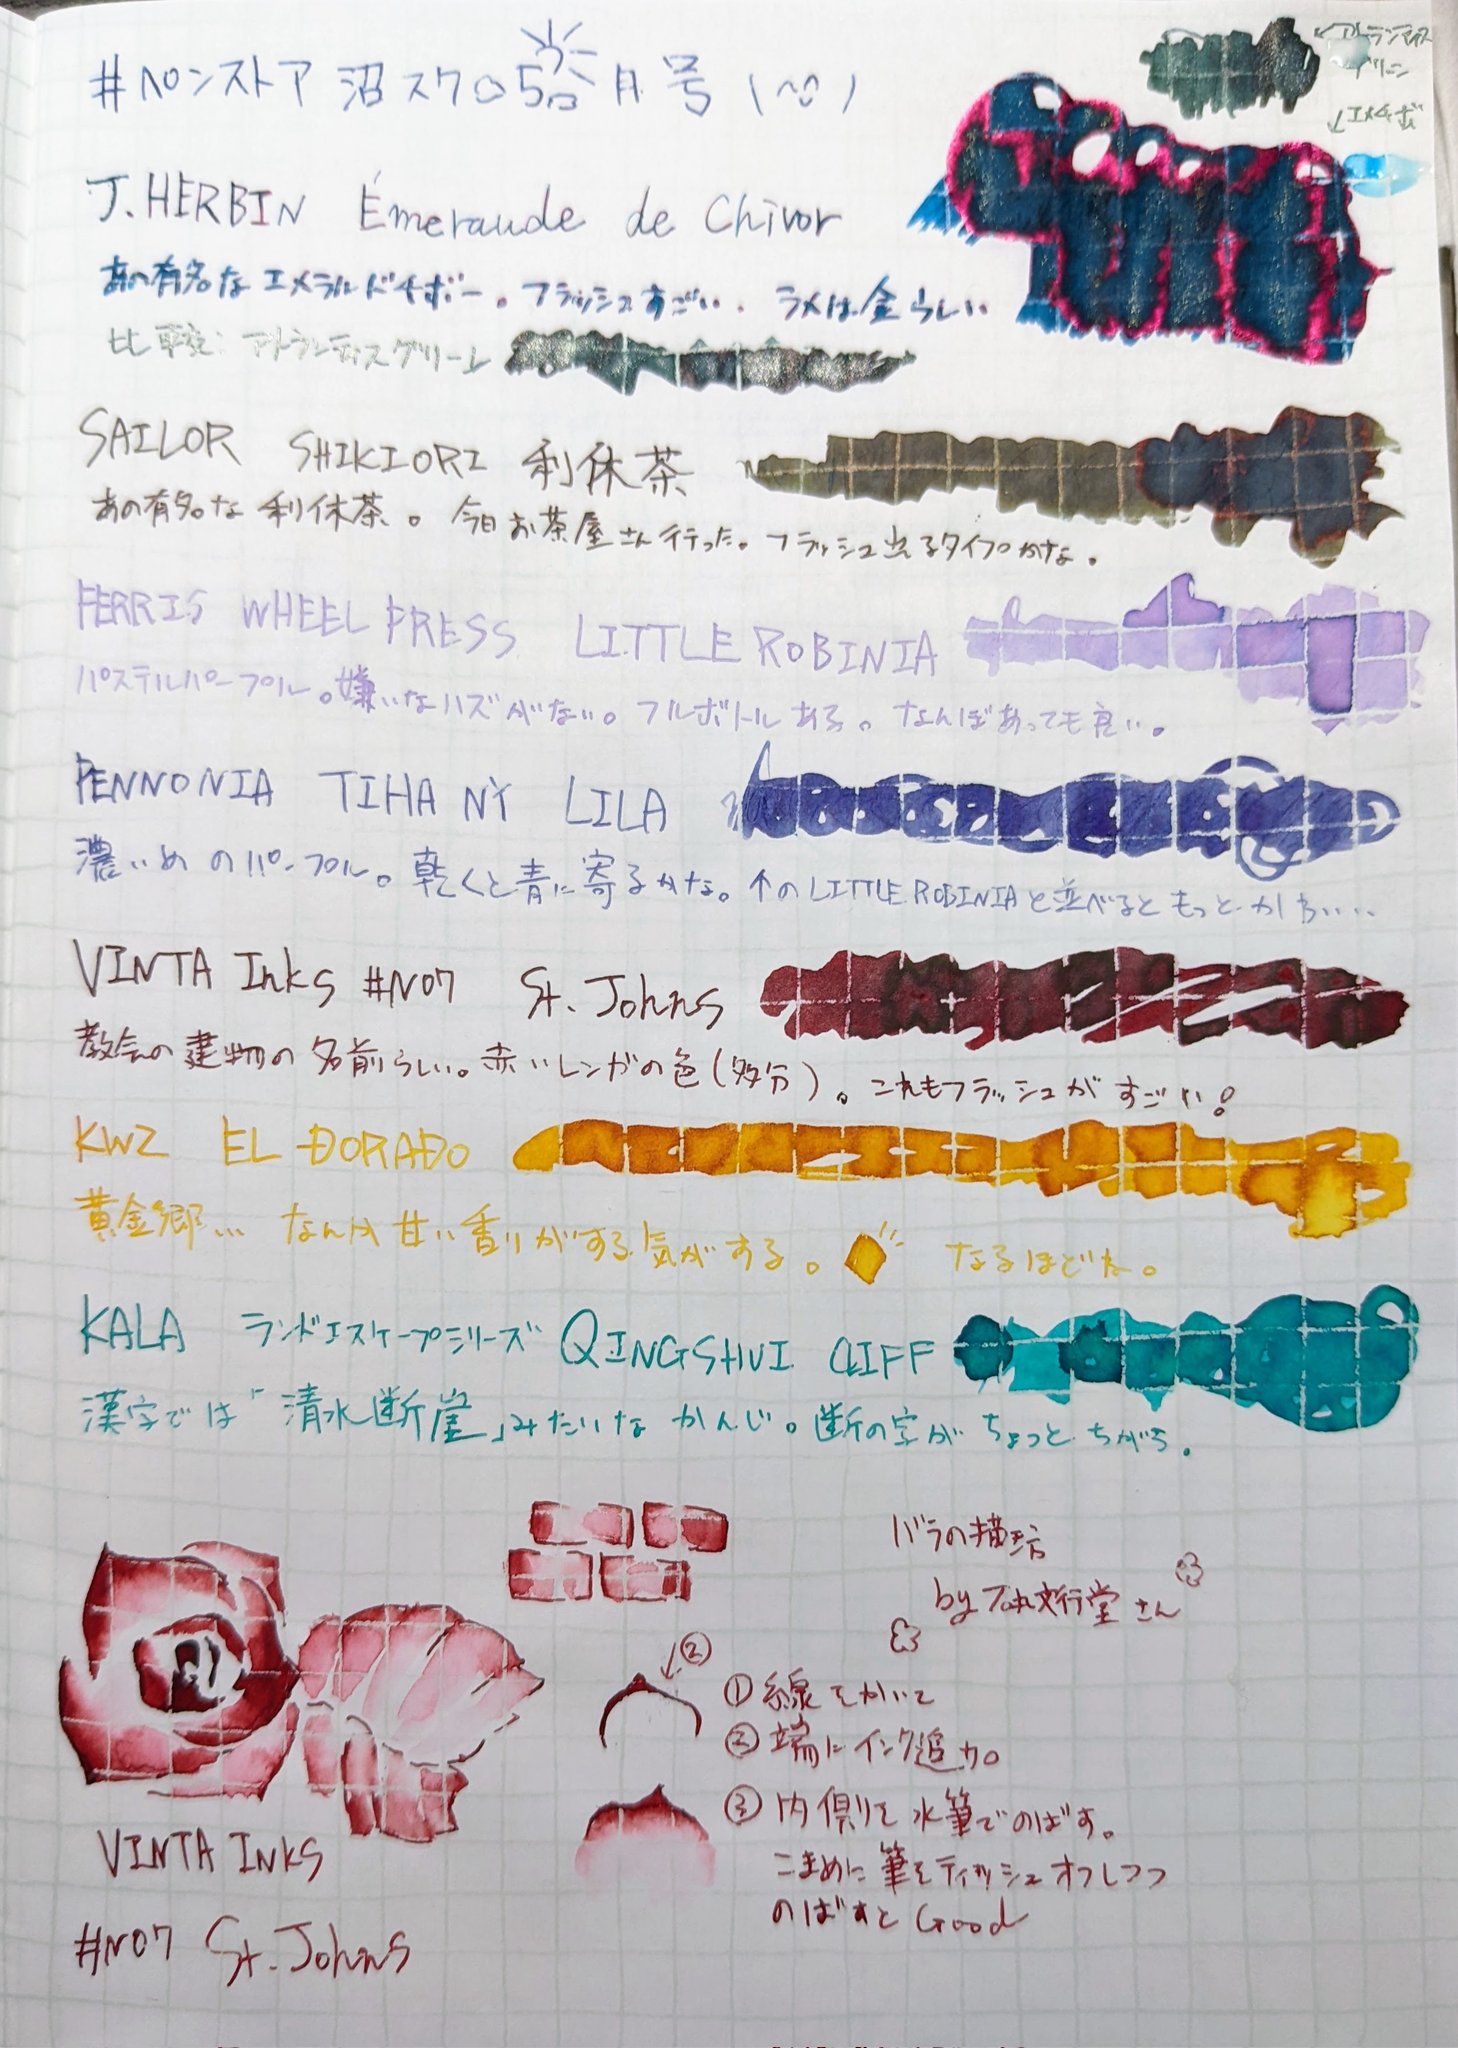 #ペンストア沼スクロ5月号
アトランティス
グリーン
エメチボ
J.HERBIN Émeraude de Chivor
あの有名なエメラルドチボー。フラッシュすごい。ラメは金らしい
比較:アトランティスグリーン
SAILOR SHIKIORI 利休茶
あの有名な利休茶。今日お茶屋さん行った。フラッシュ出るタイプかな。
FERRIS WHEEL PRESS LITTLE ROBINIA
パステルパープル。嫌いなハズがない。フルボトルある。なんぼあっても良い。
PENNONIA TIHANY LILA
濃いめのパープル。乾くと青に寄るかな。↑のLITTLE ROBINIAと並べるともっとかわいい
VINTA Inks #N07 St. Johns
教会の建物の名前らしい。赤いレンガの色(多分)。これもフラッシュがすごい!
KWZ EL DORADO
黄金郷… なんか甘い香りがする気がする。 なるほどね。
KALA ランドエスケープシリーズ QINGSHUI CLIFF
漢字では「清水断崖」みたいなかんじ。断の字がちょっとちがう。
バラの描き方
by 石丸文行堂さん
②
①線をかいて
②端にインク追加。
③内側を水筆でのばす。
こまめに筆をティッシュオフしつつ
のばすとGood
VINTA INKS
#N07 St. Johns